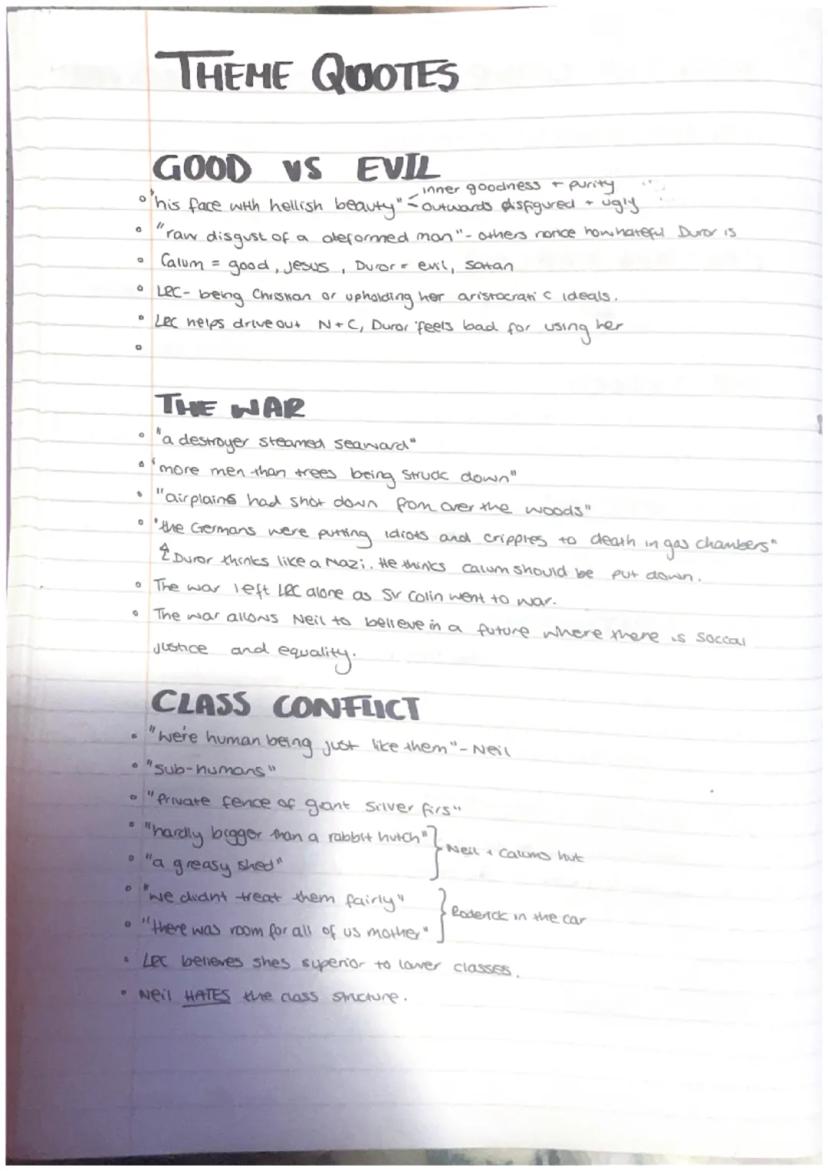 THEME QUOTES
GOOD VS EVIL
inner goodness + purity
"his face with hellish beauty" outwards disfigured + ugly
"raw disgust of a deformed man" - others notice how hateful Duror is
Calum = good, Jesus, Duror = evil, satan
LRC- being Christian or upholding her aristocratic ideals.
LRC helps drive out N+C, Duror feels bad for using her
THE WAR
"a destroyer steamed seaward"
"more men than trees being struck down"
"airplains had shot down from over the woods"
"the Germans were putting idiots and cripples to death in gas chambers"
Duror thinks like a Nazi. He thinks calum should be put down.
The war left LRC alone as Sir Colin went to war.
The war allows Neil to believe in a future where there is social
justice and equality.
CLASS CONFLICT
"we're human being just like them" - Neil
"sub-humans"
"Private fence of giant silver firs"
"hardly bigger than a rabbit hutch"
Neil + Calums hut
"a greasy shed"
"we didnt treat them fairly"
Roderick in the car
"there was room for all of us mother"
LRC believes shes superior to lower classes.
Neil HATES the class structure.